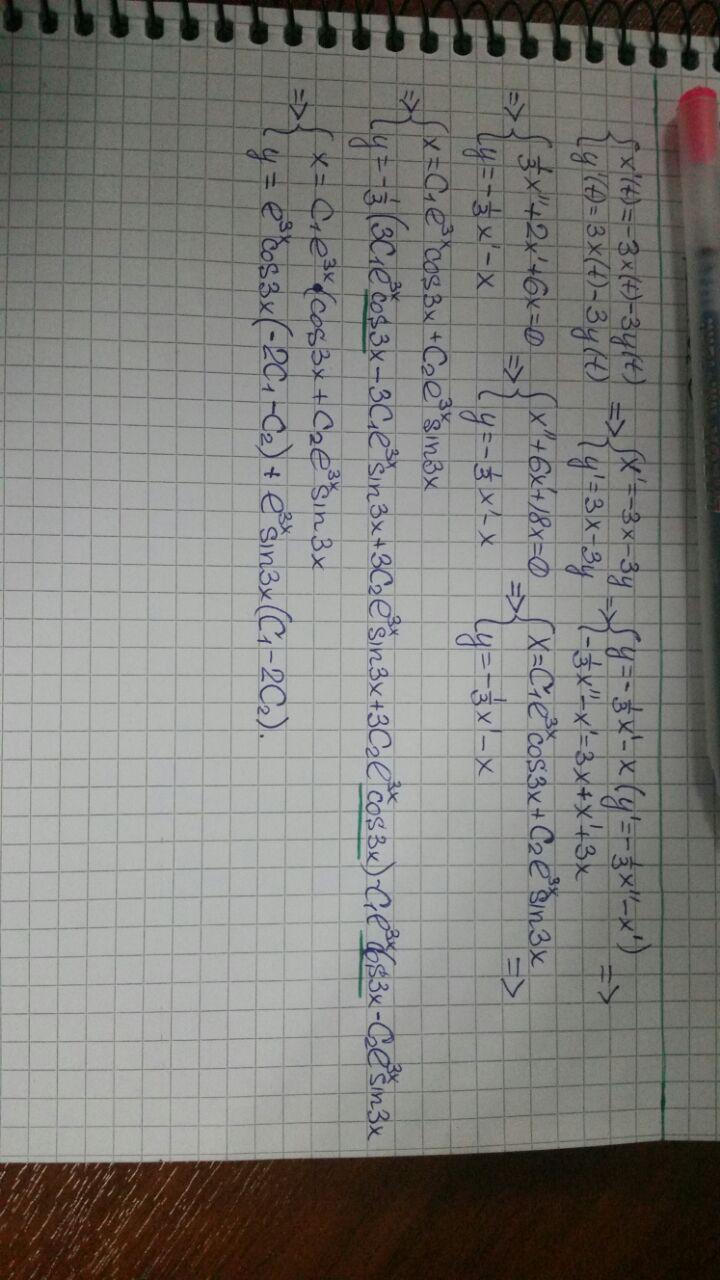 {x'(t)=-3x(t)-3y(t) => {x'=-3x-3y => {y=-1/3x'-x (y'=-1/3x''-x') =>
{y'(t)=3x(t)-3y(t) {y'=3x-3y {-1/3x''-x'=3x+x'+3x
=> {1/3x''+2x'+6x=0 => {x''+6x'+18x=0 => {x=C₁e^3x cos3x+C₂e^3x sin3x =>
{y=-1/3x'-x {y=-1/3x'-x {y=-1/3x'-x
=> {x=C₁e^3x cos3x+C₂e^3x sin3x
{y=-1/3(3C₁e^3x cos3x-3C₁e^3x sin3x+3C₂e^3x sin3x+3C₂e^3x cos3x)-C₁e^3x cos3x-C₂e^3x sin3x
=> {x=C₁e^3x·(cos3x+C₂e^3x sin3x
{y=e^3x cos3x(-2C₁-C₂)+e^3x sin3x(C₁-2C₂).